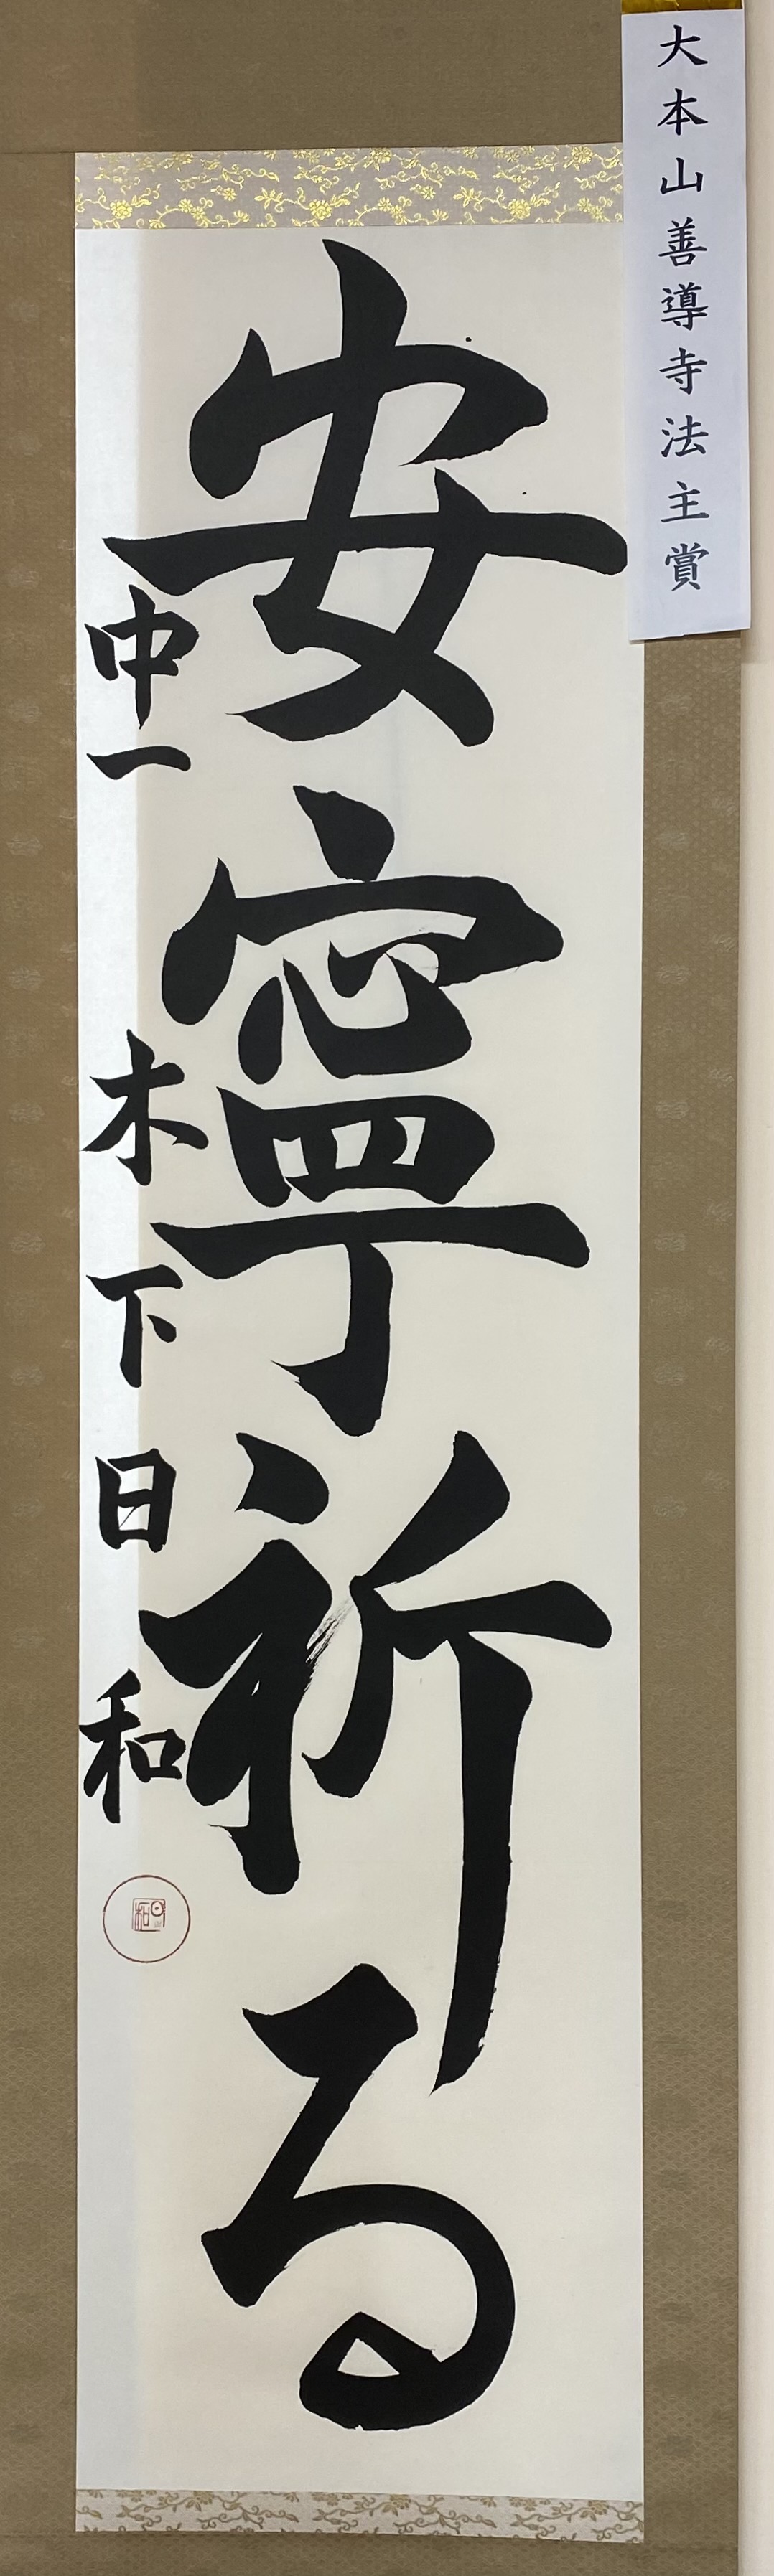 大本山善導寺法主賞
安寧祈る
中一 木下日和